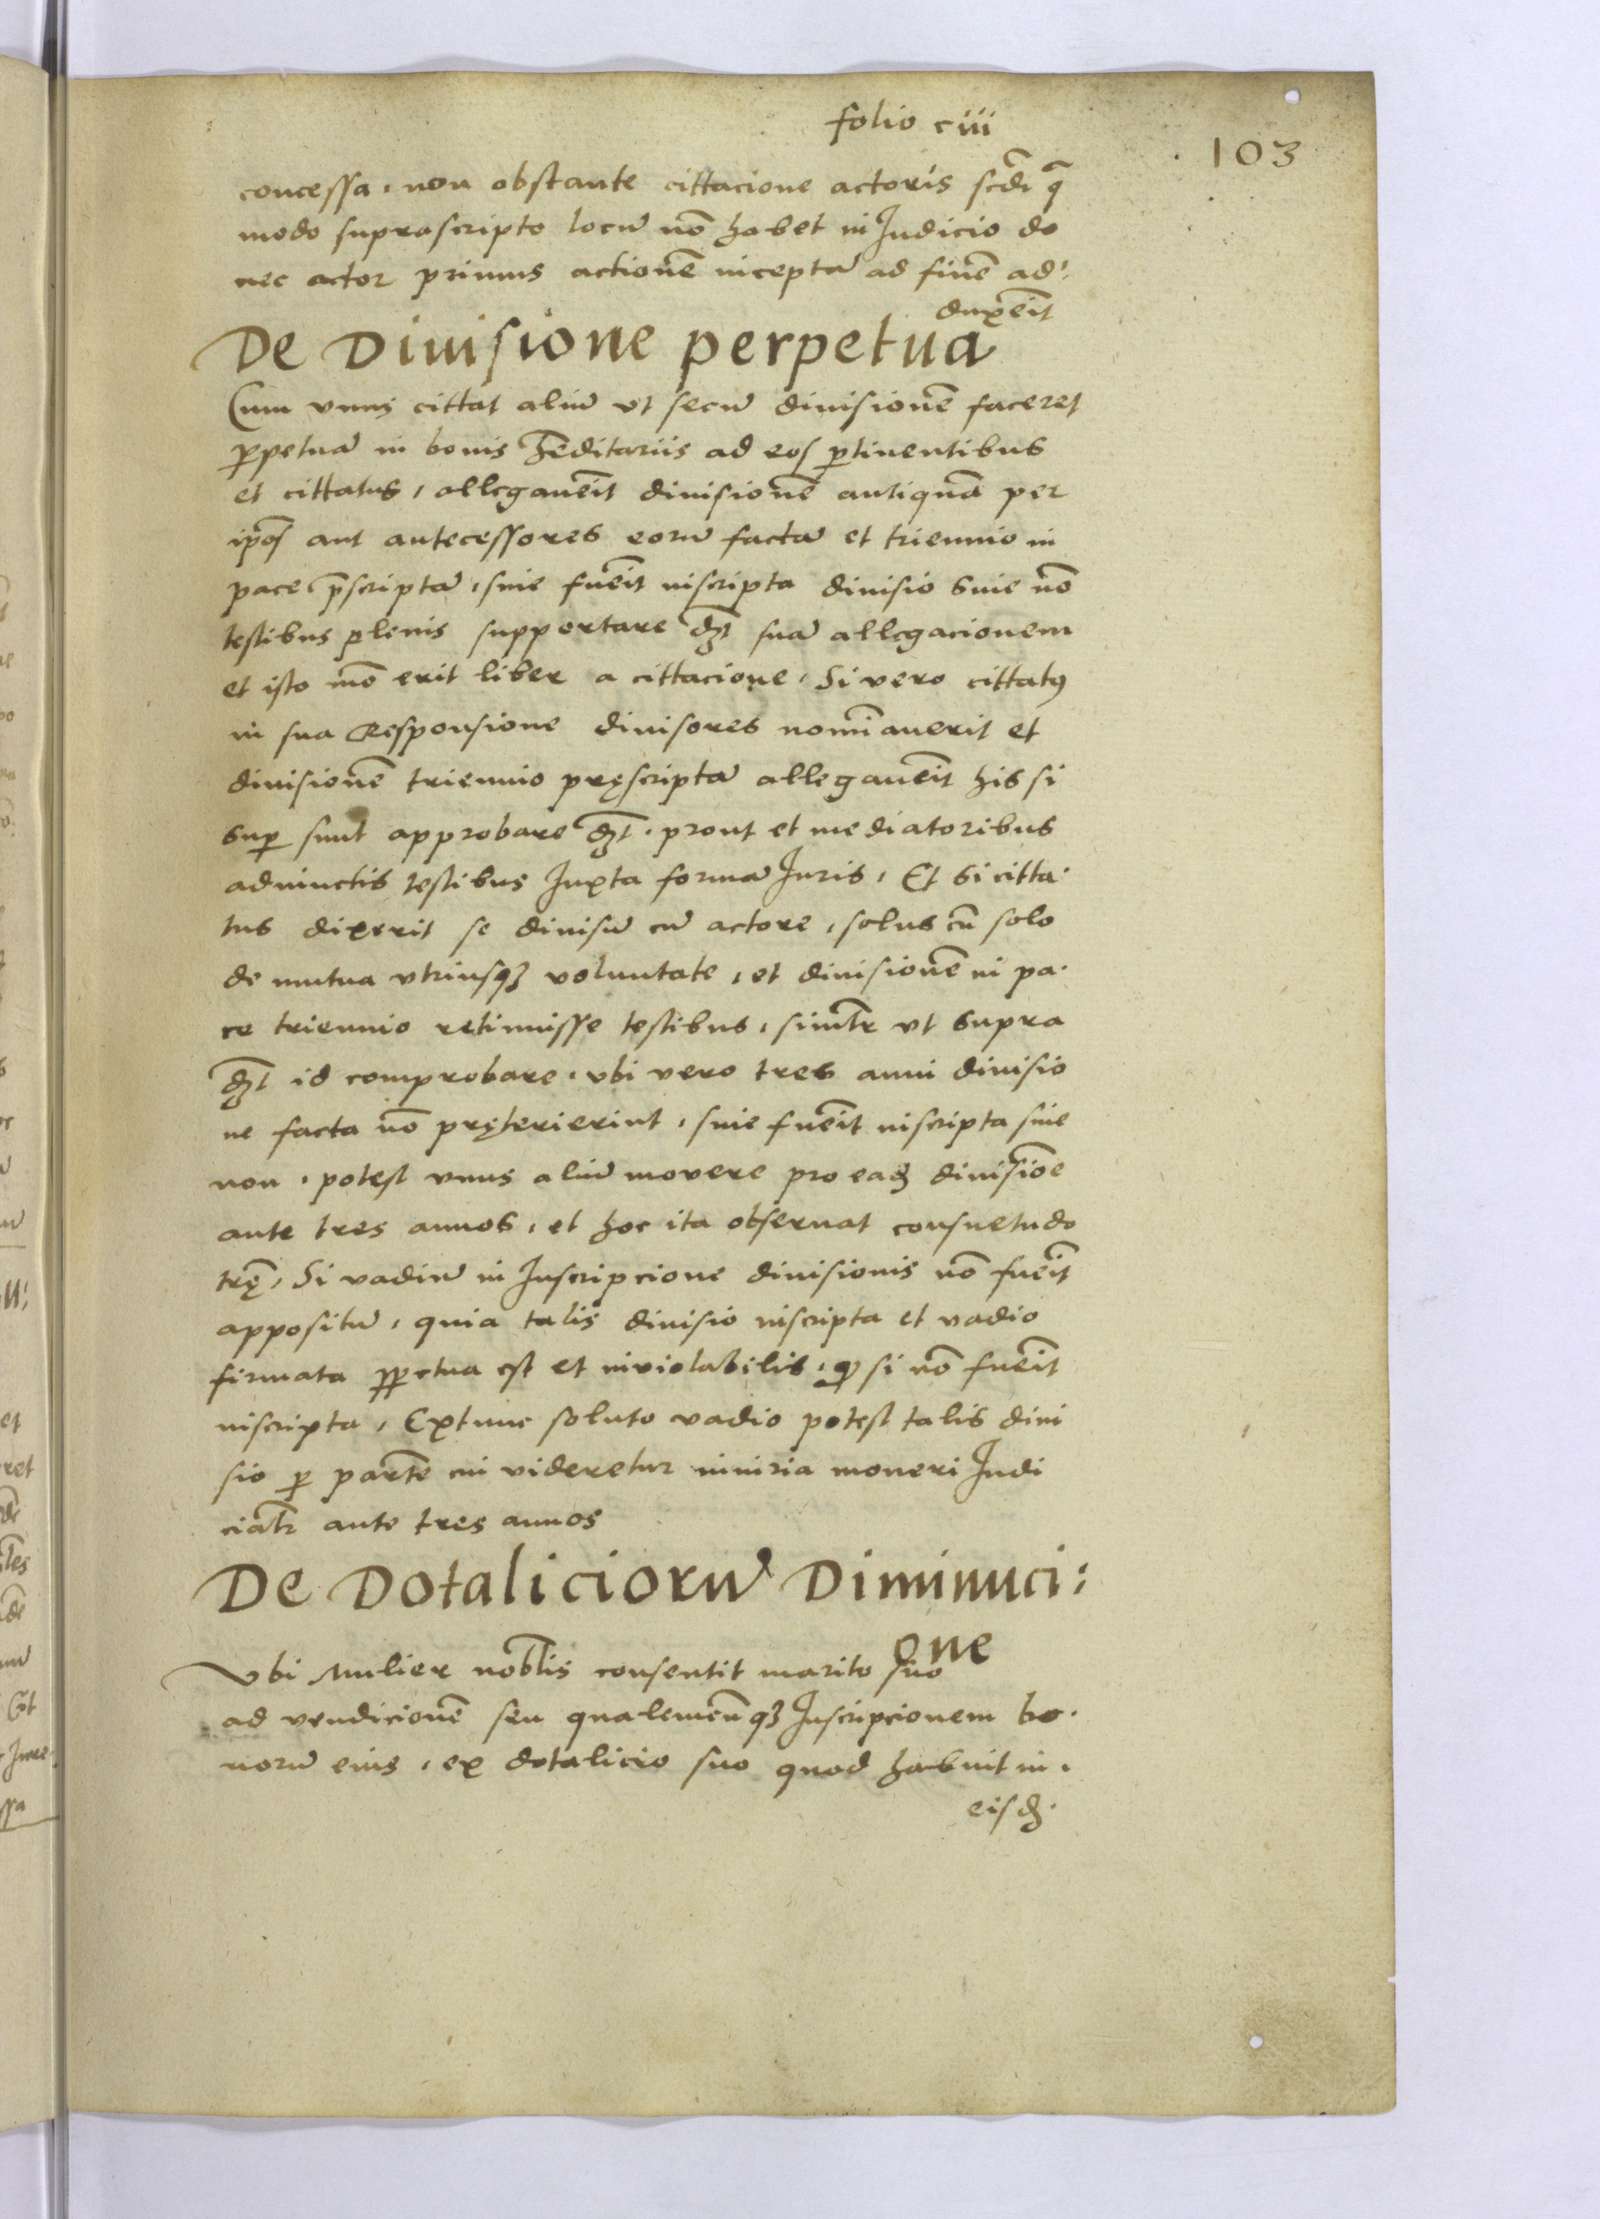 folio ciii
103
concessa, non obstante cittacione actoris scdi q̃
modo suprascripto locũ nõ habet in Judicio do
nec actor primus actionẽ inceptã ad finẽ ad:
duxeĩt
De Diuisione perpetua
Cum vnus cittat aliũ vt secũ diuisionẽ faceret
ꝑpetuã in bonis hẽditariis ad eos ꝑtinentibus
et cittatus, allegaueĩt diuisionẽ antiquã per
ip̃os aut antecessores eorũ factã et triennio in
pace p̃scriptã, siue fueĩt inscripta diuisio siue nõ
testibus plenis supportare dꝫt suã allegacionem
et isto mõ erit liber a cittacione, Si vero cittatꝰ
in sua Responsione diuisores nomĩauerit et
diuisionẽ triennio pręscriptã allegaueĩt his si
suꝑ sunt approbare dꝫt. prout et mediatoribus
adiunctis testibus Juxta formã Juris, Et si citta.
tus dixerit se diuisũ cũ actore, solus cũ solo
de mutua vtriusqꝫ voluntate, et diuisionẽ in pa.
ce triennio retinuisse testibus, simltr̃ vt supra
dꝫt id comprobare, vbi vero tres anni diuisio
ne facta nõ pręterierint, siue fueĩt inscripta siue
non, potest vnus aliũ mouere pro eadꝫ diuisiõe
ante tres annos, et hoc ita obseruat consuetudo
trę̃, Si vadiũ in Inscripcione diuisionis nõ fueĩt
appositũ, quia talis diuisio inscripta et vadio
firmata ꝑpetua est et inviolabilis, qꝫ si nõ fueĩt
inscripta, Extunc soluto vadio potest talis diui
sio ꝑ partẽ cui videretur iniuria moueri Judi
cialr̃ ante tres annos
De Dotaliciorũ Diminuci:
one
Vbi Mulier nobĩlis consentit marito suo
ad vendicionẽ seu qualemcũqꝫ Inscripcionem bo.
norũ eius, ex dotalicio suo quod habuit in,
eisdꝫ.